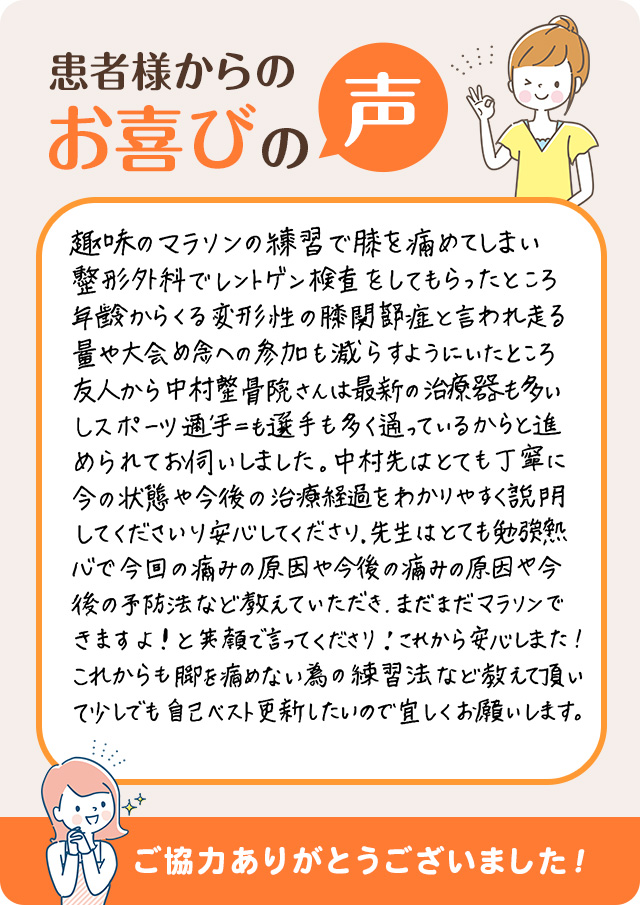 患者様からの
お喜びの声
趣味のマラソンの練習で膝を痛めてしまい
整形外科でレントゲン検査をしてもらったところ
年齢からくる変形性の膝関節症と言われ走る
量や大会め念への参加も減らすようにいたところ
友人から中村整骨院さんは最新の治療器も多い
しスポーツ選手も多く通っているからと進
められてお伺いしました。中村先はとても丁寧に
今の状態や今後の治療経過をわかりやすく説明
してくださいり安心してくださり.先生はとても勉強熱
心で今回の痛みの原因や今後の痛みの原因や今
後の予防法など教えていただき.まだまだマラソンで
きますよ!と笑顔で言ってくださり!これから安心しまた!
これからも脚を痛めない為の練習法など教えて頂い
て少しでも自己ベスト更新したいので宜しくお願いします。
ご協力ありがとうございました!